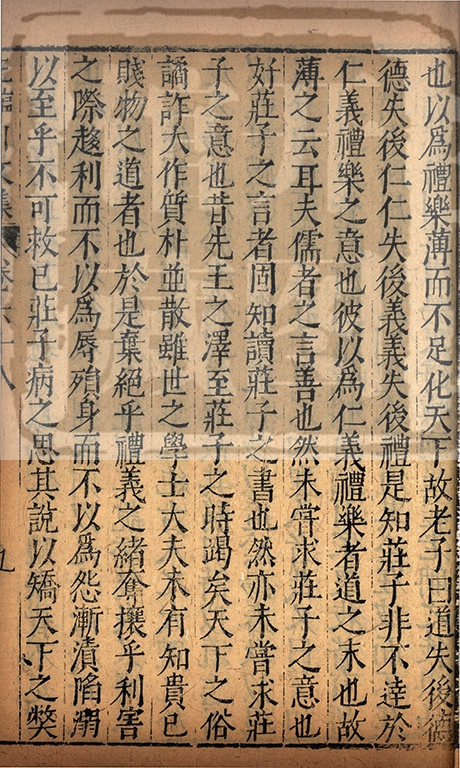 也以爲禮樂薄而不足化天下故老子曰道失後德
德失後仁仁失後義義失後禮是知莊子非不達於
仁義禮樂之意也彼以爲仁義禮樂者道之末也故
薄之云耳夫儒者之言善也然未嘗求莊子之意也
好莊子之言者固知讀莊子之書也然亦未嘗求莊
子之意也昔先王之澤至莊子之時竭矣天下之俗
譎詐大作質朴並散雖世之學士大夫未有知貴已
賤物之道者也於是棄絕乎禮義之緒奪攘乎利害
之際趨利而不以爲辱殞身而不以爲怨漸漬陷溺
以至乎不可救已莊子病之思其說以矯天下之弊
臨川文集 卷六十八 九